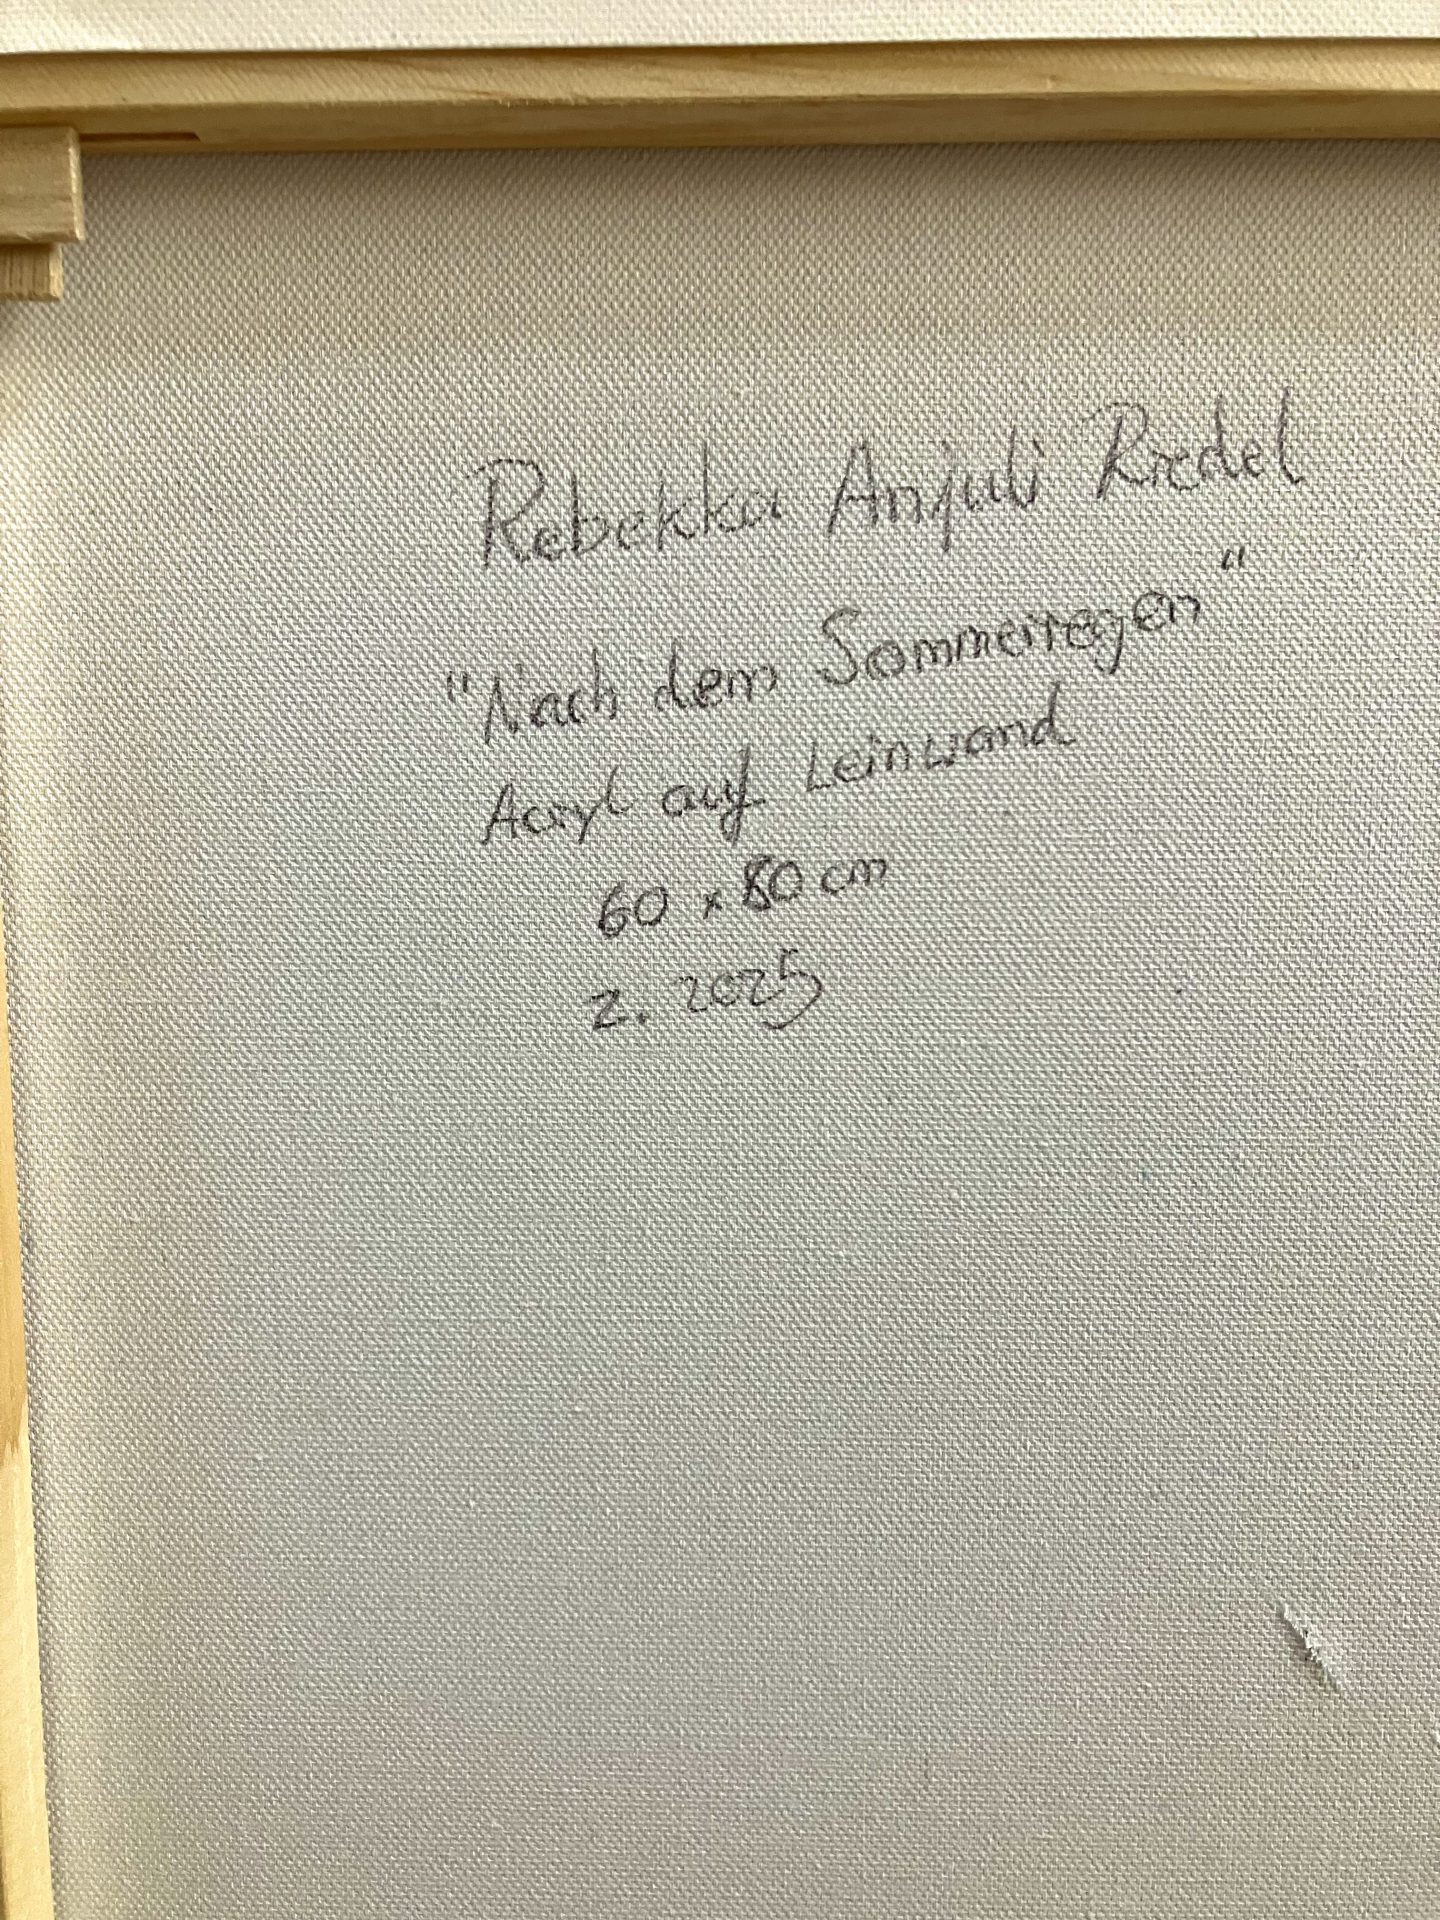 Rebekka Anjuli Riedel
"Nach dem Sommerregen"
Acryl auf Leinwand
60 x 80 cm
2. 2025